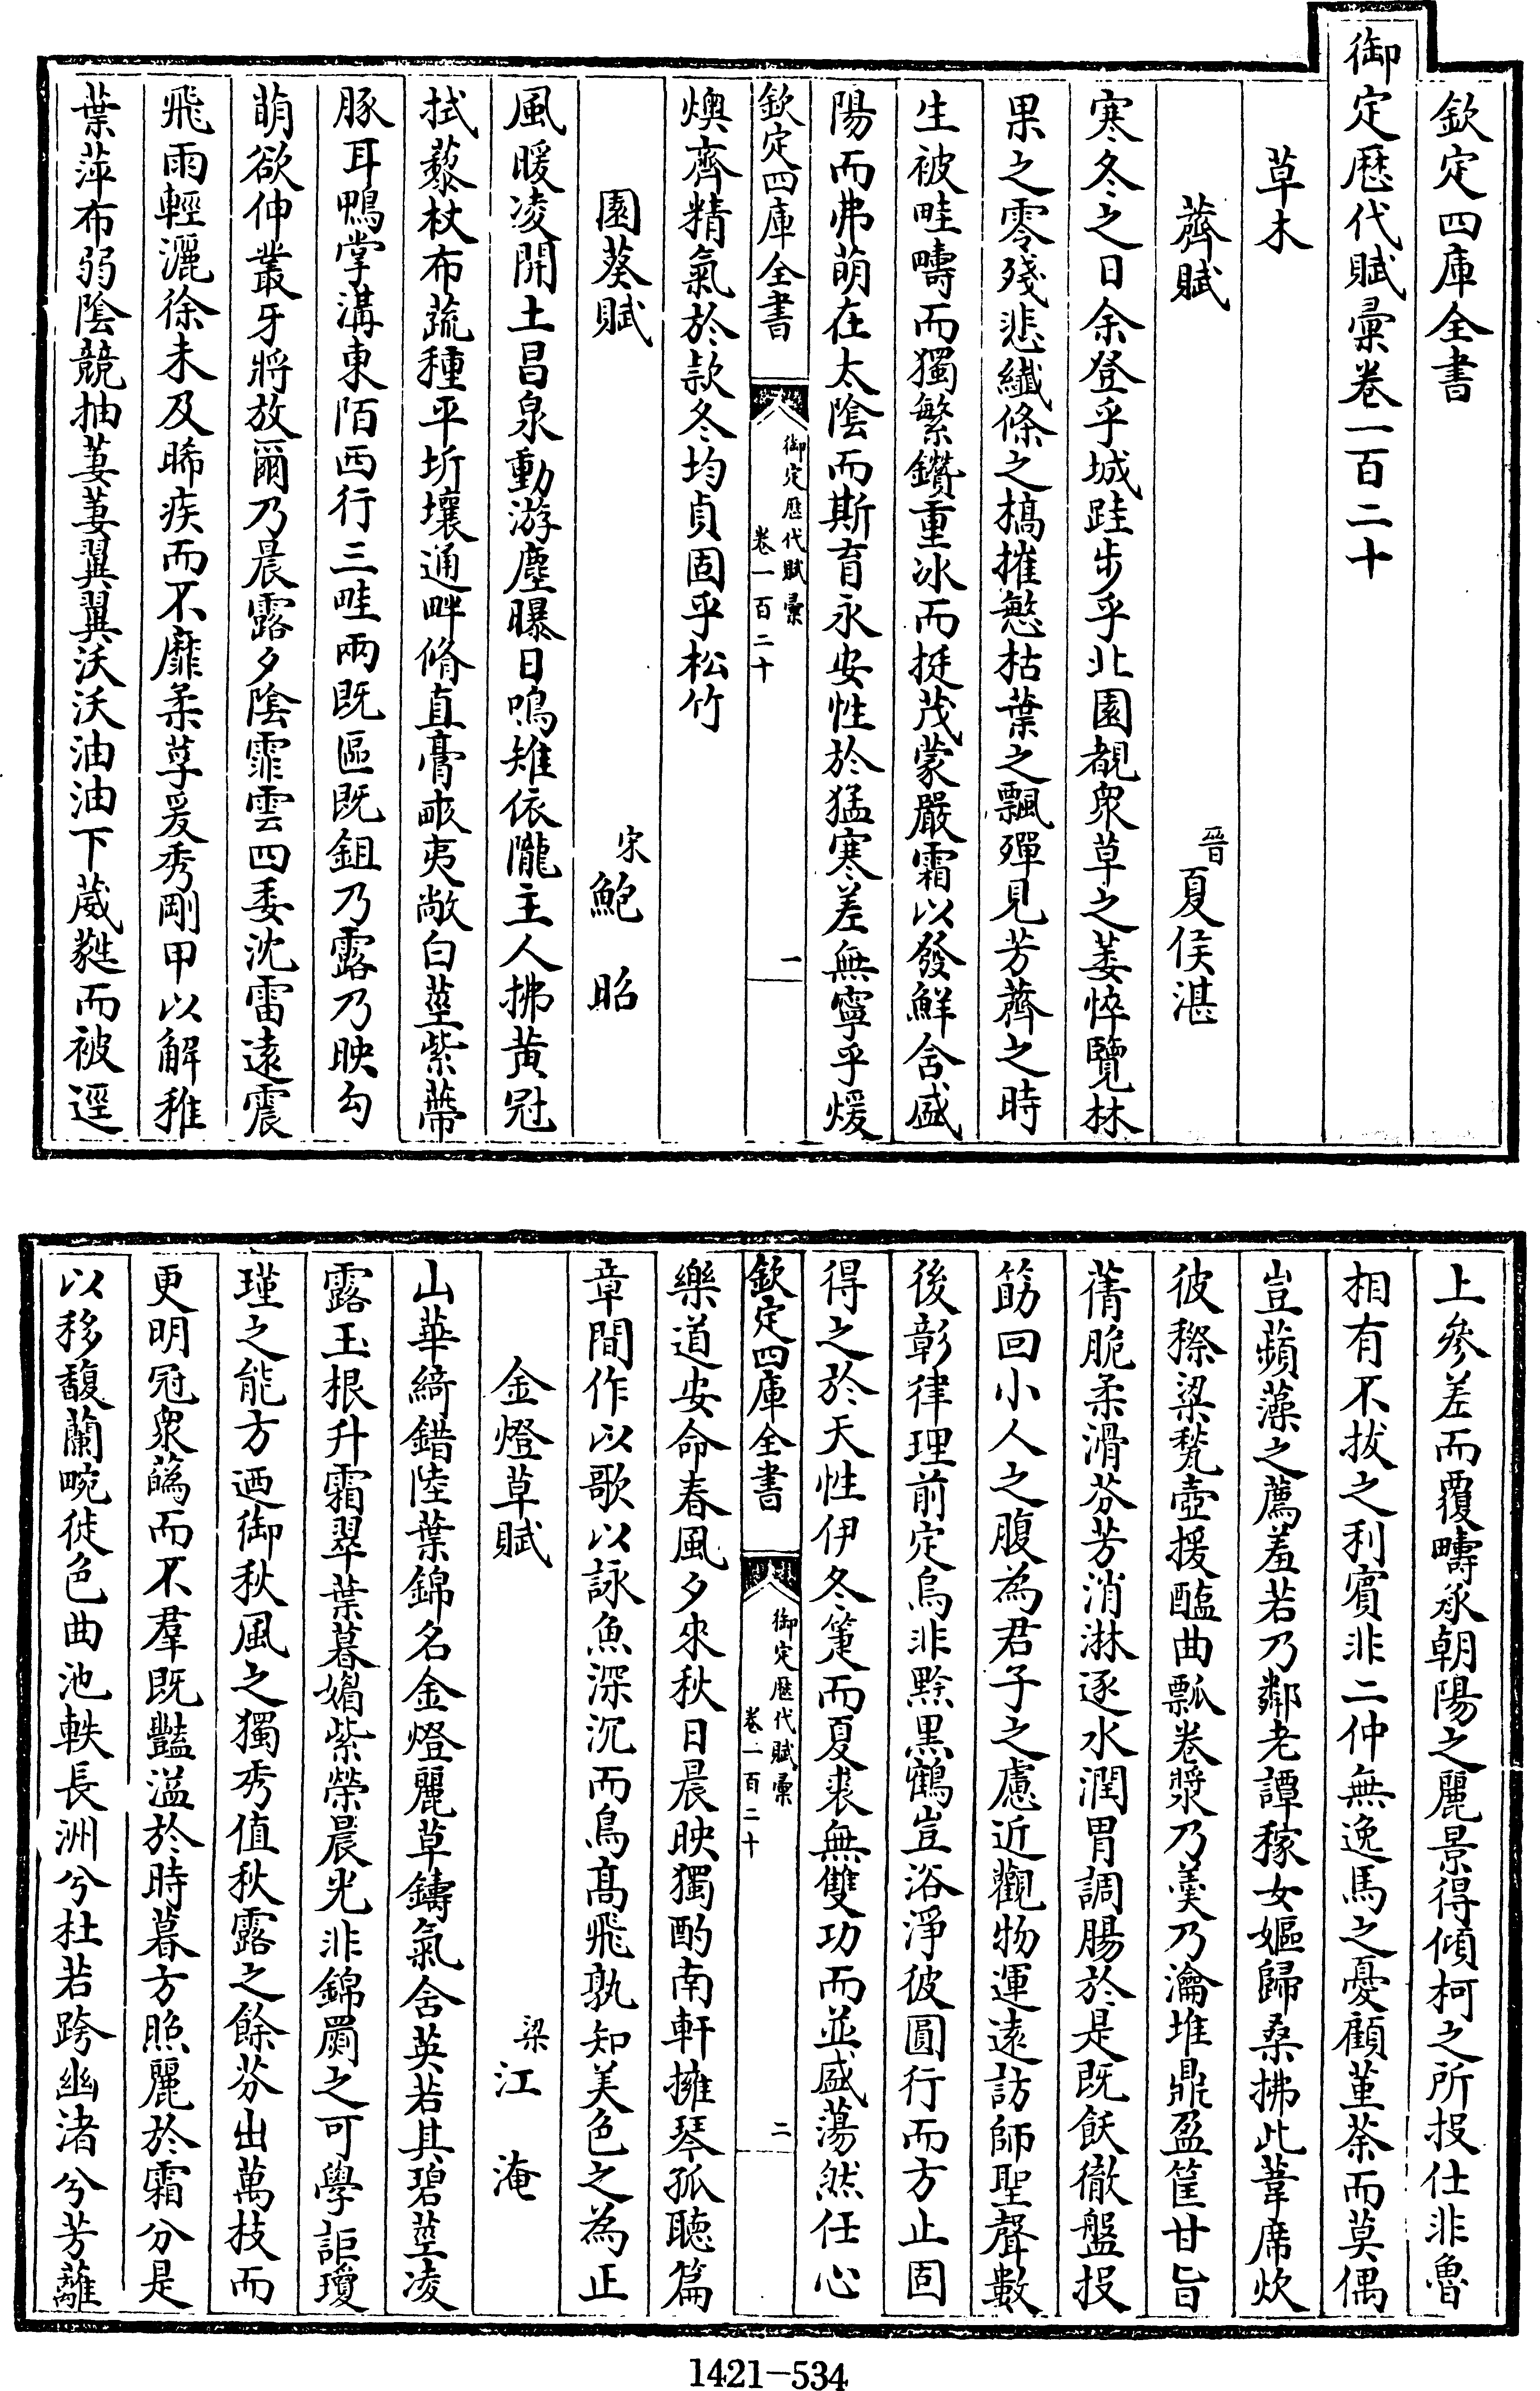 欽定四庫全書
御定歷代賦彙卷一百二十
草木
薺賦
晉夏侯湛
寒冬之日余登乎城跬步乎北園覩衆草之萎悴覽林
果之零殘悲纖條之槁摧慜枯葉之飄殫見芳薺之時
生被畦疇而獨繁鑽重冰而挺茂蒙嚴霜以發鮮舍盛
陽而弗萌在太陰而斯育永安性於猛寒差無寧乎煖
欽定四庫全書
御定歷代賦彙
卷一百二十
一
燠齊精氣於款冬均貞固乎松竹
園葵賦
宋鮑昭
風暖凌開土昌泉動游塵曝日鳴雉依隴主人拂黃冠
拭藜杖布蔬種平圻壤通畔脩直膏畝夷敞白莖紫蔕
豚耳鴨掌溝東陌西行三畦兩既區既鉏乃露乃映勾
萌欲伸叢牙將放爾乃晨露夕陰霏雲四委沈雷遠震
飛雨輕灑徐未及晞疾而不靡柔莩爰秀剛甲以解稚
葉萍布弱陰競抽萋萋翼翼沃沃油油下葳蕤而被逕
上參差而覆疇承朝陽之麗景得傾柯之所投仕非魯
相有不拔之利賓非二仲無逸馬之憂顧堇荼而莫偶
豈蘋藻之薦羞若乃鄰老譚稼女嫗歸桑拂此葦席炊
彼穄粱甃壺援醢曲瓢卷漿乃羹乃瀹堆鼎盈筐甘旨
蒨脆柔滑芬芳消淋逐水潤胃調腸於是既飫徹盤投
筯回小人之腹為君子之慮近觀物運遠訪師聖聲數
後彰律理前定烏非黥黑鶴豈浴淨彼圓行而方止固
得之於天性伊冬箑而夏裘無雙功而並盛蕩然任心
欽定四庫全書
御定歷代賦彙
卷一百二十
二
樂道安命春風夕來秋日晨映獨酌南軒擁琴孤聽篇
章間作以歌以詠魚深沉而鳥高飛孰知美色之為正
金燈草賦
梁江淹
山華綺錯陸葉錦名金燈麗草鑄氣舍英若其碧莖凌
露玉根升霜翠葉暮媚紫榮晨光非錦罽之可學詎瓊
瑾之能方迺御秋風之獨秀值秋露之餘芬出萬枝而
更明冠衆蘤而不羣既豔溢於時暮方照麗於霜分是
以移馥蘭畹徙色曲池軼長洲兮杜若跨幽渚兮芳離
1421-534